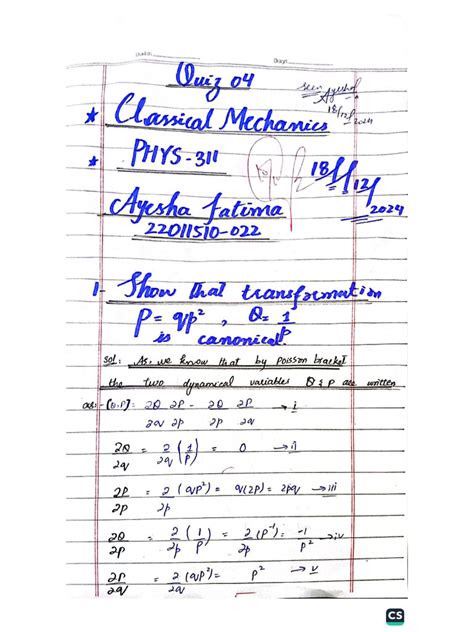 Quiz 04
seen Ayesha
18/12/2024
* Classical Mechanics
* PHYS-311
18/12/2024
Ayesha Fatima
22011510-022
1- Show that transformation
P = qp², Q = 1/p
is canonical
Sol: As we know that by poisson bracket
the two dynamical variables Q & P are written
as:- [Q,P] = ∂Q/∂q ∂P/∂p - ∂Q/∂p ∂P/∂q → i
∂Q/∂q = ∂/∂q (1/p) = 0 → ii
∂P/∂p = ∂/∂p (qp²) = q(2p) = 2pq → iii
∂Q/∂p = ∂/∂p (1/p) = ∂/∂p (p⁻¹) = -1/p² → iv
∂P/∂q = ∂/∂q (qp²) = p² → v
CS